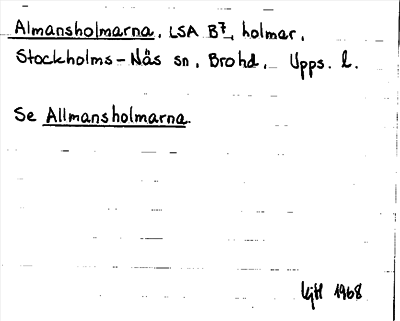 Almansholmarna, LSA B7, holmar,
Stockholms-Näs sn, Brohd, Upps. l.
Se Allmansholmarna.
1968